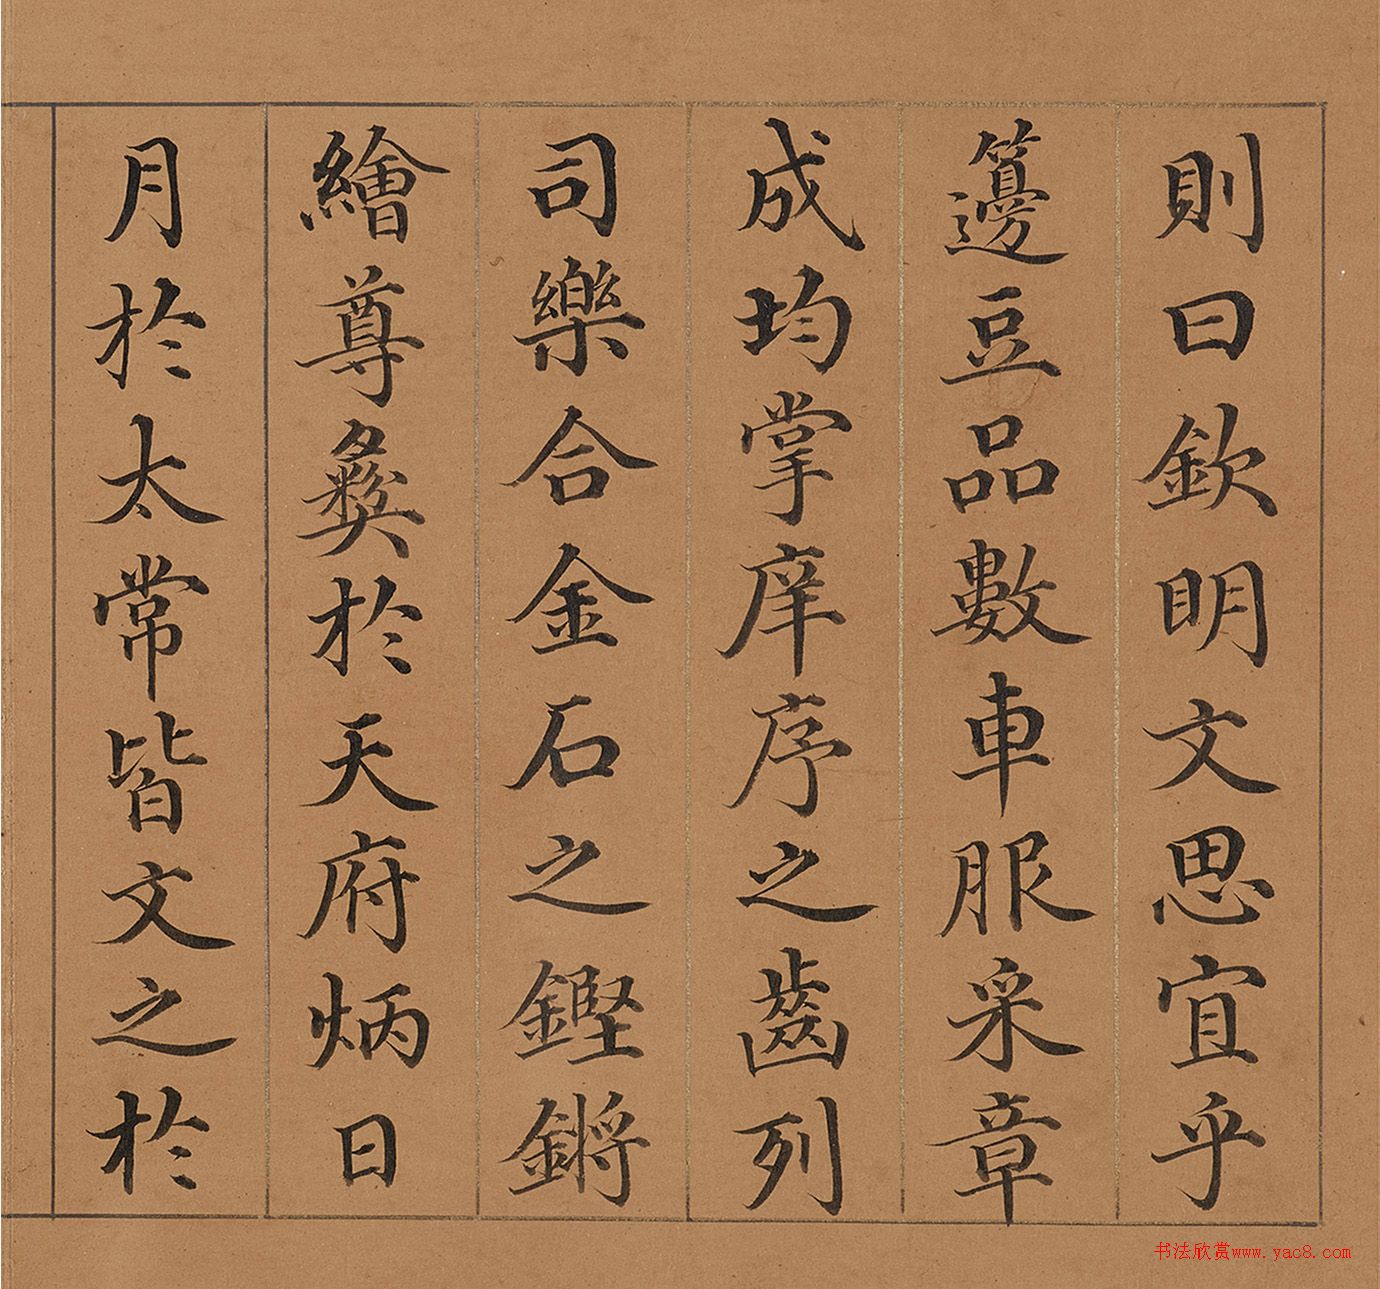 則曰欽明文思宜乎
籩豆品數車服采章
成均掌庠序之齒列
司樂合金石之鏗鏘
繪尊彝於天府炳日
月於太常皆文之於
书法欣赏www.yac8.com